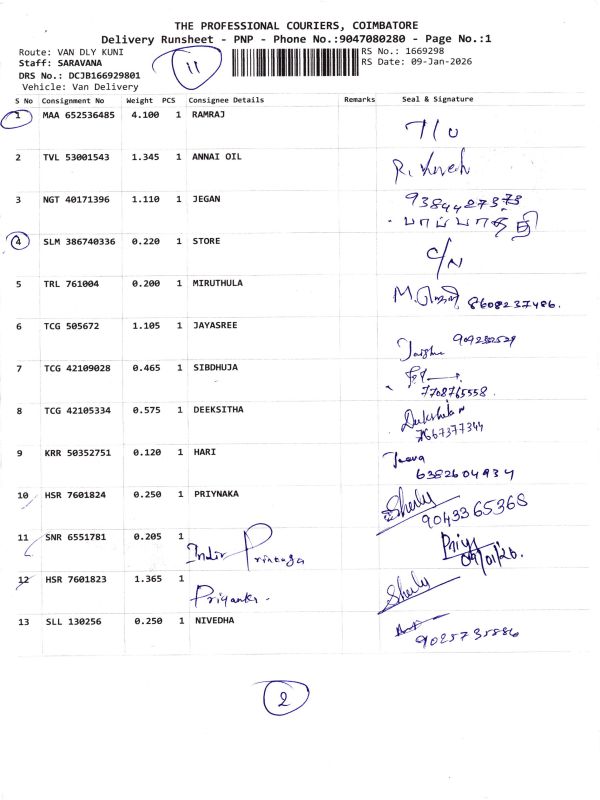 THE PROFESSIONAL COURIERS, COIMBATORE
Delivery Runsheet - PNP - Phone No.:9047080280 - Page No.:1
Route: VAN DLY KUNI
Staff: SARAVANA
DRS No.: DCJB166929801
Vehicle: Van Delivery
11
RS No.: 1669298
RS Date: 09-Jan-2026
S No Consignment No Weight PCS Consignee Details Remarks Seal & Signature
1 MAA 652536485 4.100 1 RAMRAJ T/O
2 TVL 53001543 1.345 1 ANNAI OIL
3 NGT 40171396 1.110 1 JEGAN 9384427373
பாப்பாத்தி
4 SLM 386740336 0.220 1 STORE C/N
5 TRL 761004 0.200 1 MIRUTHULA 8608237486.
6 TCG 505672 1.105 1 JAYASREE
7 TCG 42109028 0.465 1 SIBDHUJA
7708765558
8 TCG 42105334 0.575 1 DEEKSITHA
7667377344
9 KRR 50352751 0.120 1 HARI Jeeva
6382604934
10 HSR 7601824 0.250 1 PRIYNAKA Sherly
9043365368
11 SNR 6551781 0.205 1 Priya
09/01/26.
12 HSR 7601823 1.365 1 Priyanka. Sherly
13 SLL 130256 0.250 1 NIVEDHA
9025735886
2